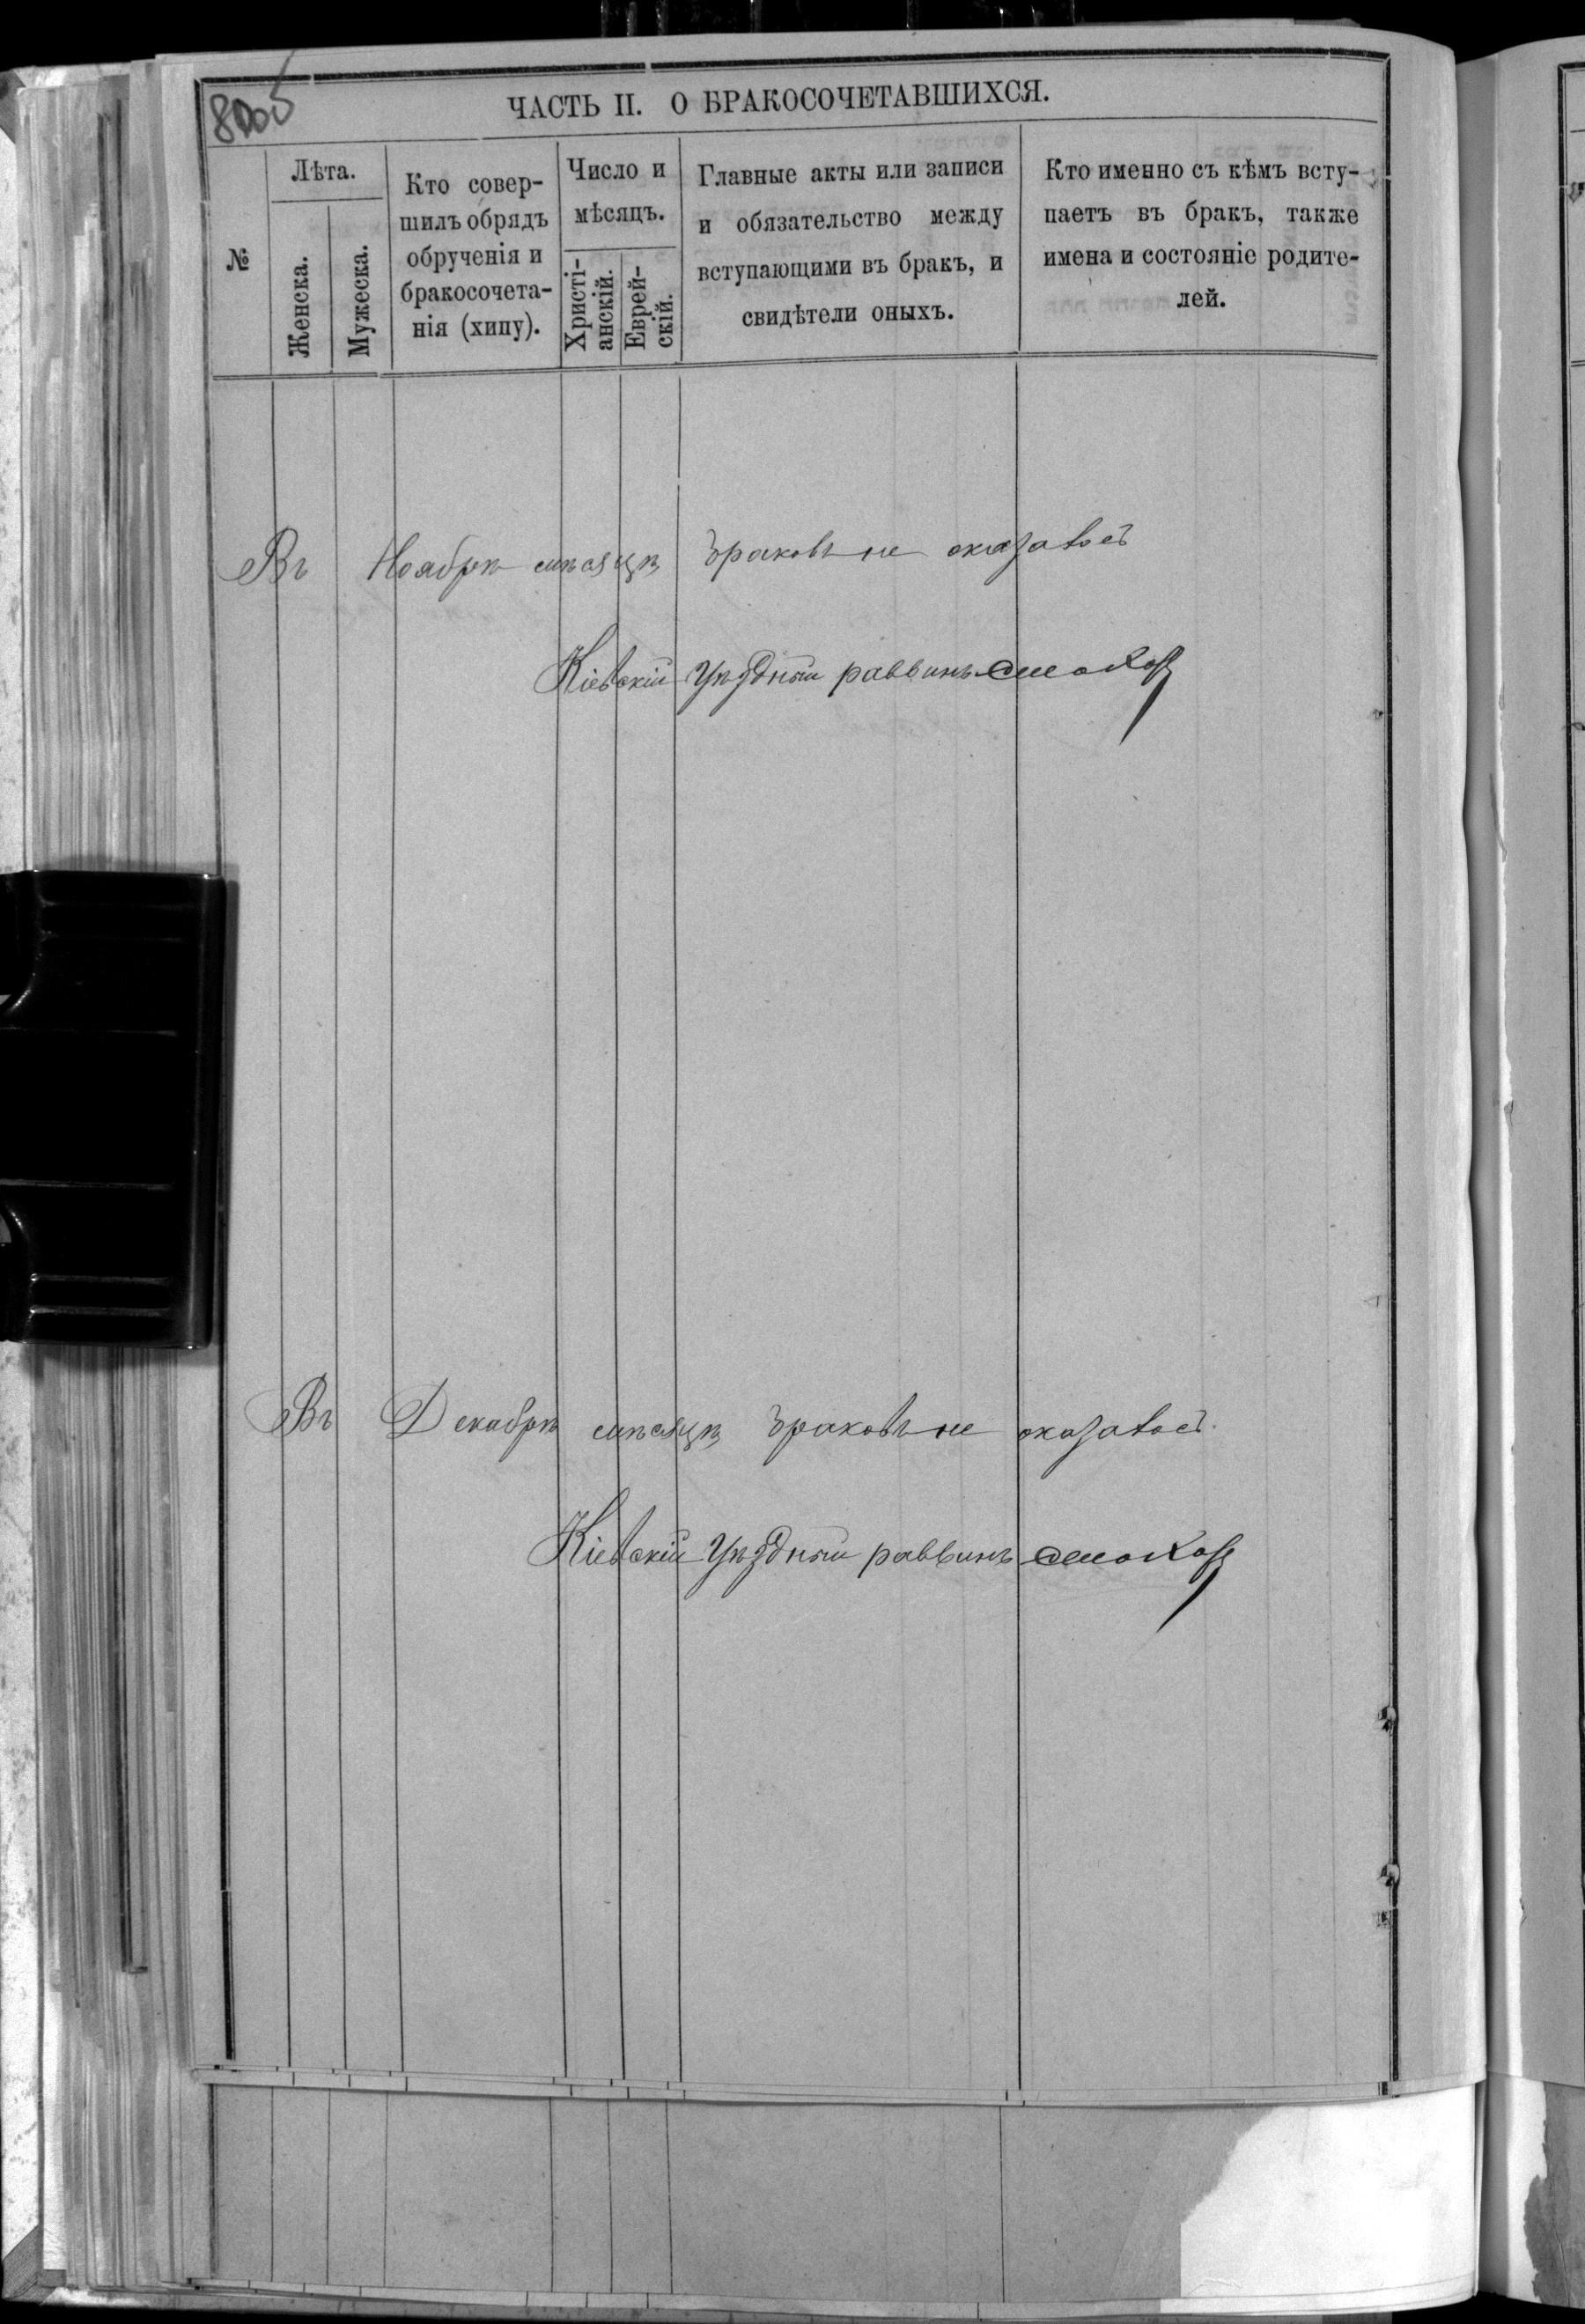 ЧАСТЬ II. О БРАКОСОЧЕТАВШИХСЯ.
№
Лѣта.
Женска.
Мужеска.
Кто совер-
шилъ обрядъ
обрученія и
бракосочета-
нія (хипу).
Число и
мѣсяцъ.
Христі-
анскій.
Еврей-
скій.
Главные акты или записи
и обязательство между
вступающими въ бракъ, и
свидѣтели оныхъ.
Кто именно съ кѣмъ всту-
паетъ въ бракъ, также
имена и состояніе родите-
лей.
Въ Ноябрѣ мѣсяцѣ браковъ не оказалось
Кіевскій Уѣздный раввинъ
Въ Декабрѣ мѣсяцѣ браковъ не оказалось.
Кіевскій Уѣздный раввинъ